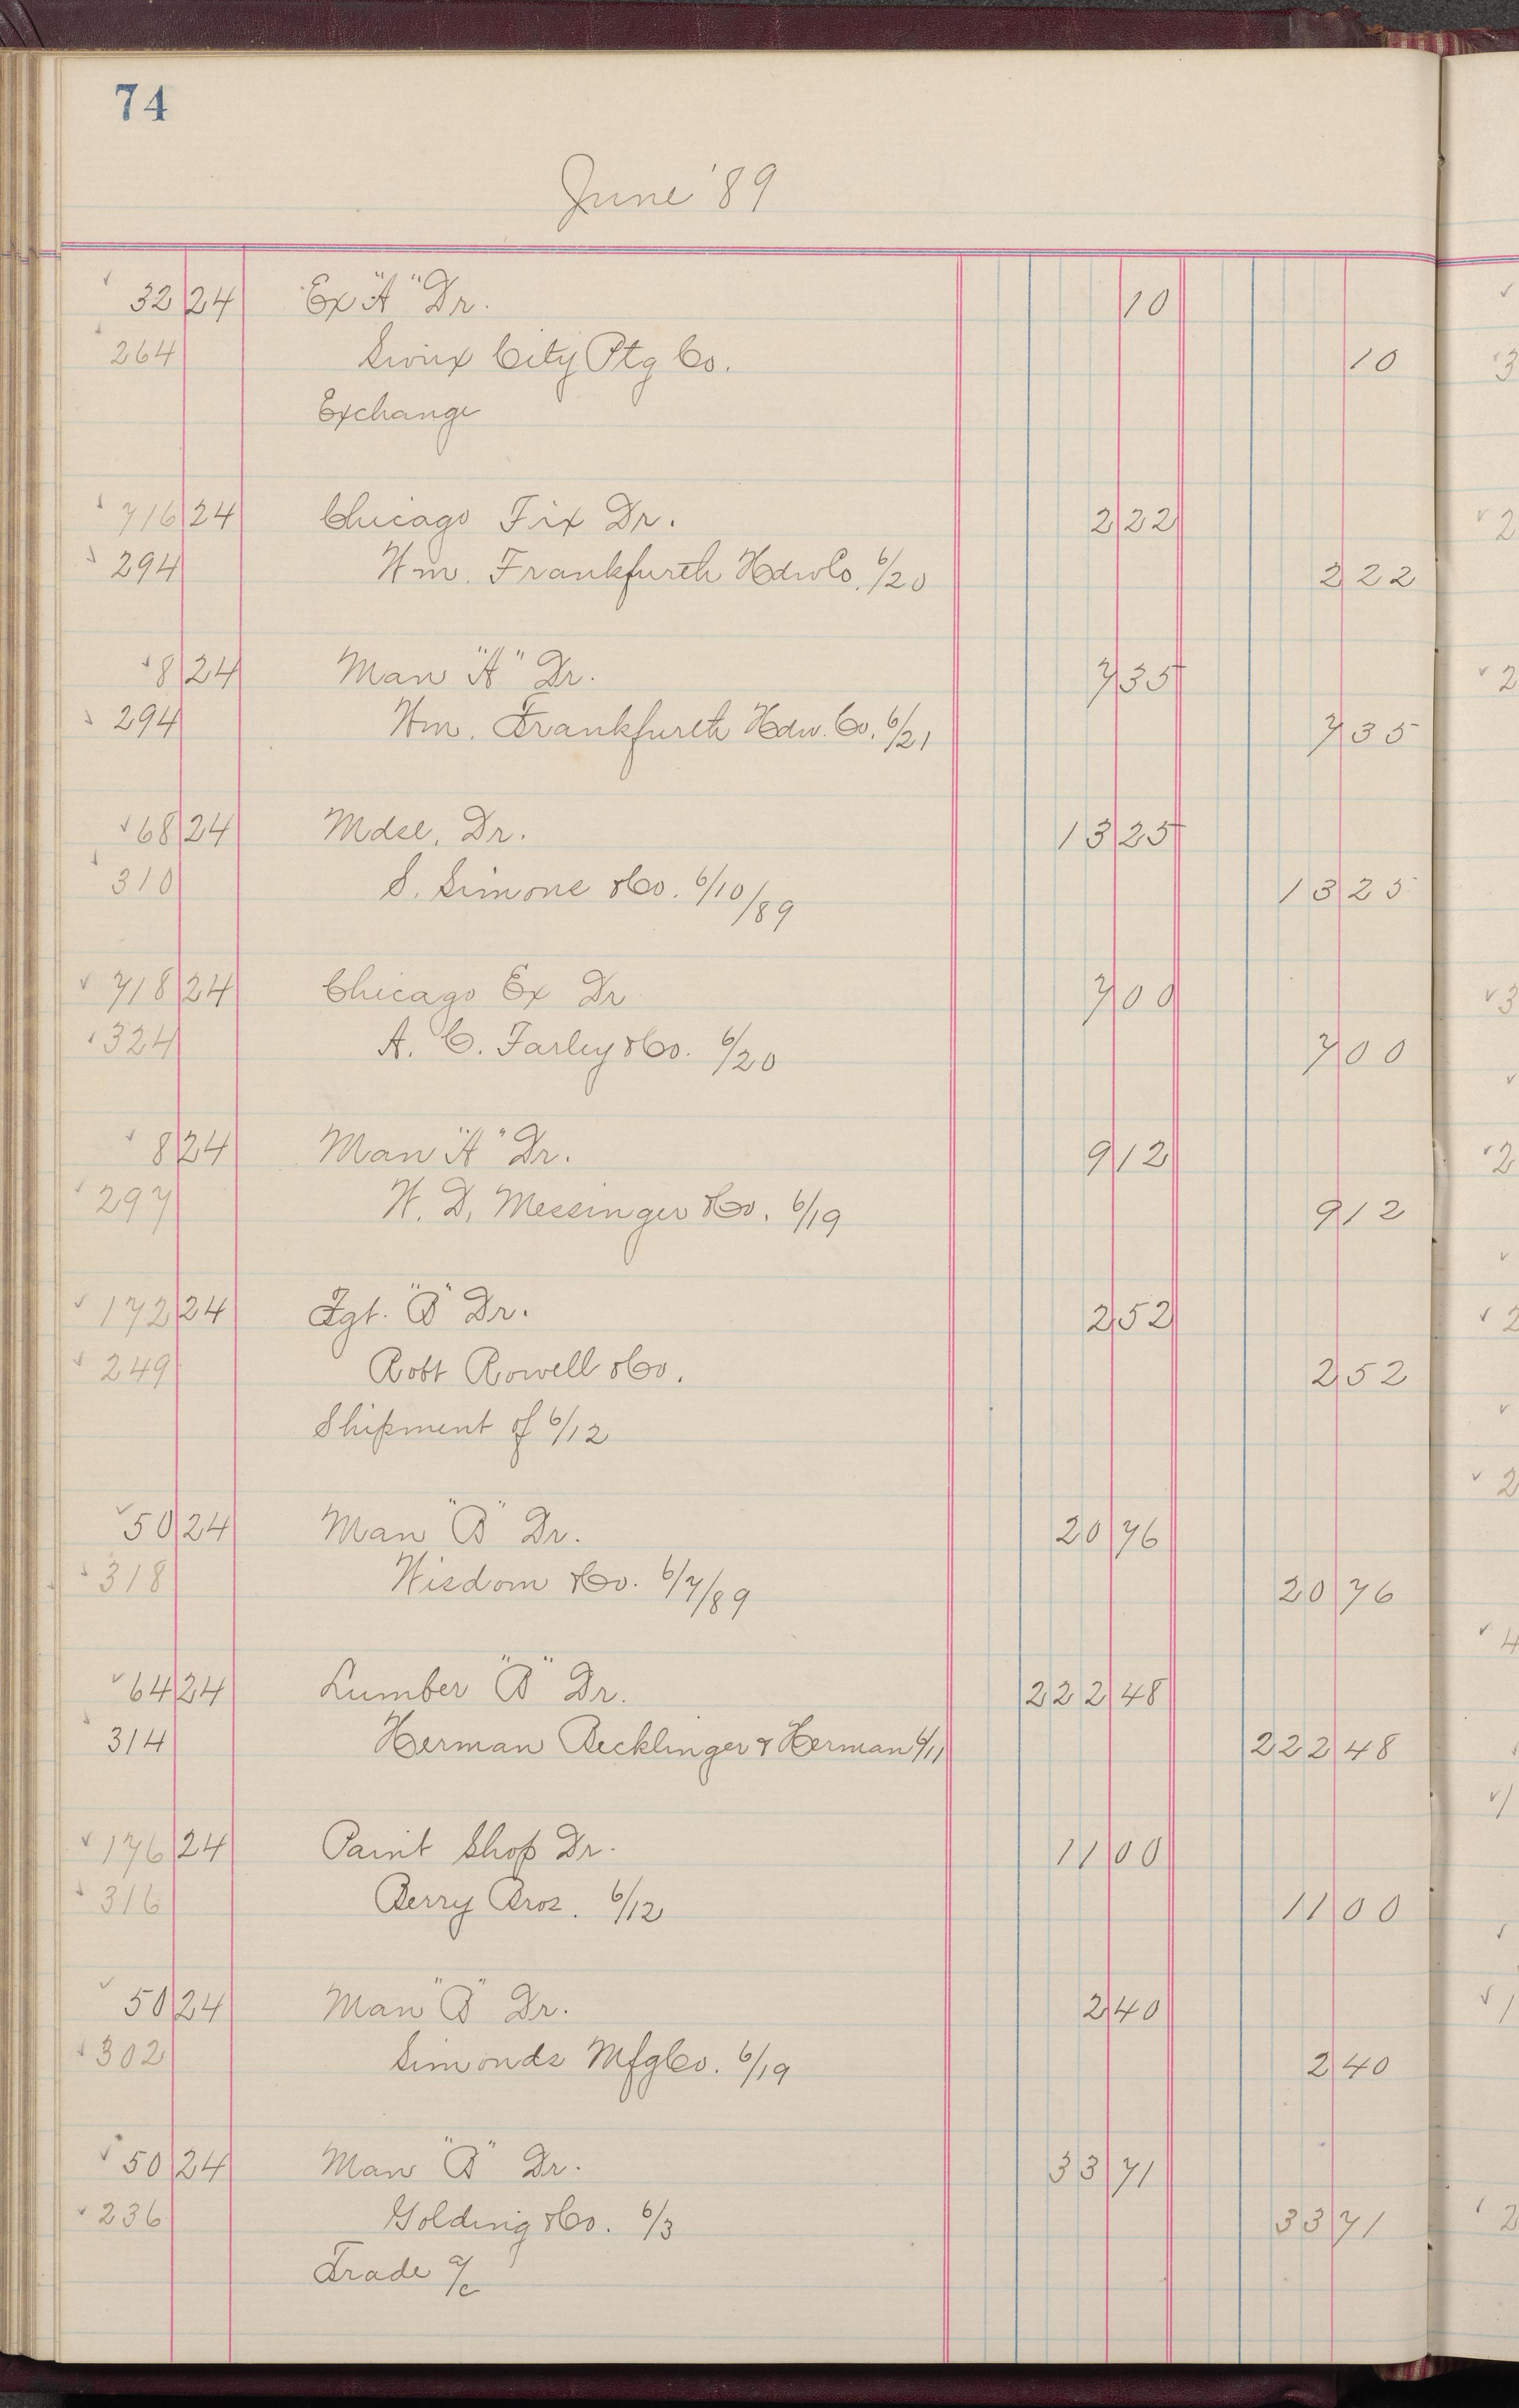 74
June '89
32 24 Ex "A" Dr. 10
264 Sioux City Ptg Co. 10
Exchange
716 24 Chicago Fix Dr. 2 22
294 Wm. Frankfurth Hdw Co. 6/20 2 22
8 24 Man "A" Dr. 7 35
294 Wm. Frankfurth Hdw. Co. 6/21 7 35
68 24 Mdse. Dr. 13 25
310 S. Simons & Co. 6/10/89 13 25
718 24 Chicago Ex Dr 7 00
324 A. C. Farley & Co. 6/20 7 00
8 24 Man "A" Dr. 9 12
297 W. D. Messinger & Co. 6/19 9 12
172 24 Fgt. "B" Dr. 2 52
249 Robt Rowell & Co. 2 52
Shipment of 6/12
50 24 Man "B" Dr. 20 76
318 Wisdom & Co. 6/7/89 20 76
64 24 Lumber "B" Dr. 222 48
314 Herman Becklinger & Herman 6/11 222 48
176 24 Paint Shop Dr. 11 00
316 Berry Bros. 6/12 11 00
50 24 Man "B" Dr. 2 40
302 Simonds Mfg Co. 6/19 2 40
50 24 Man "B" Dr. 33 71
236 Golding & Co. 6/3 33 71
Trade a/c